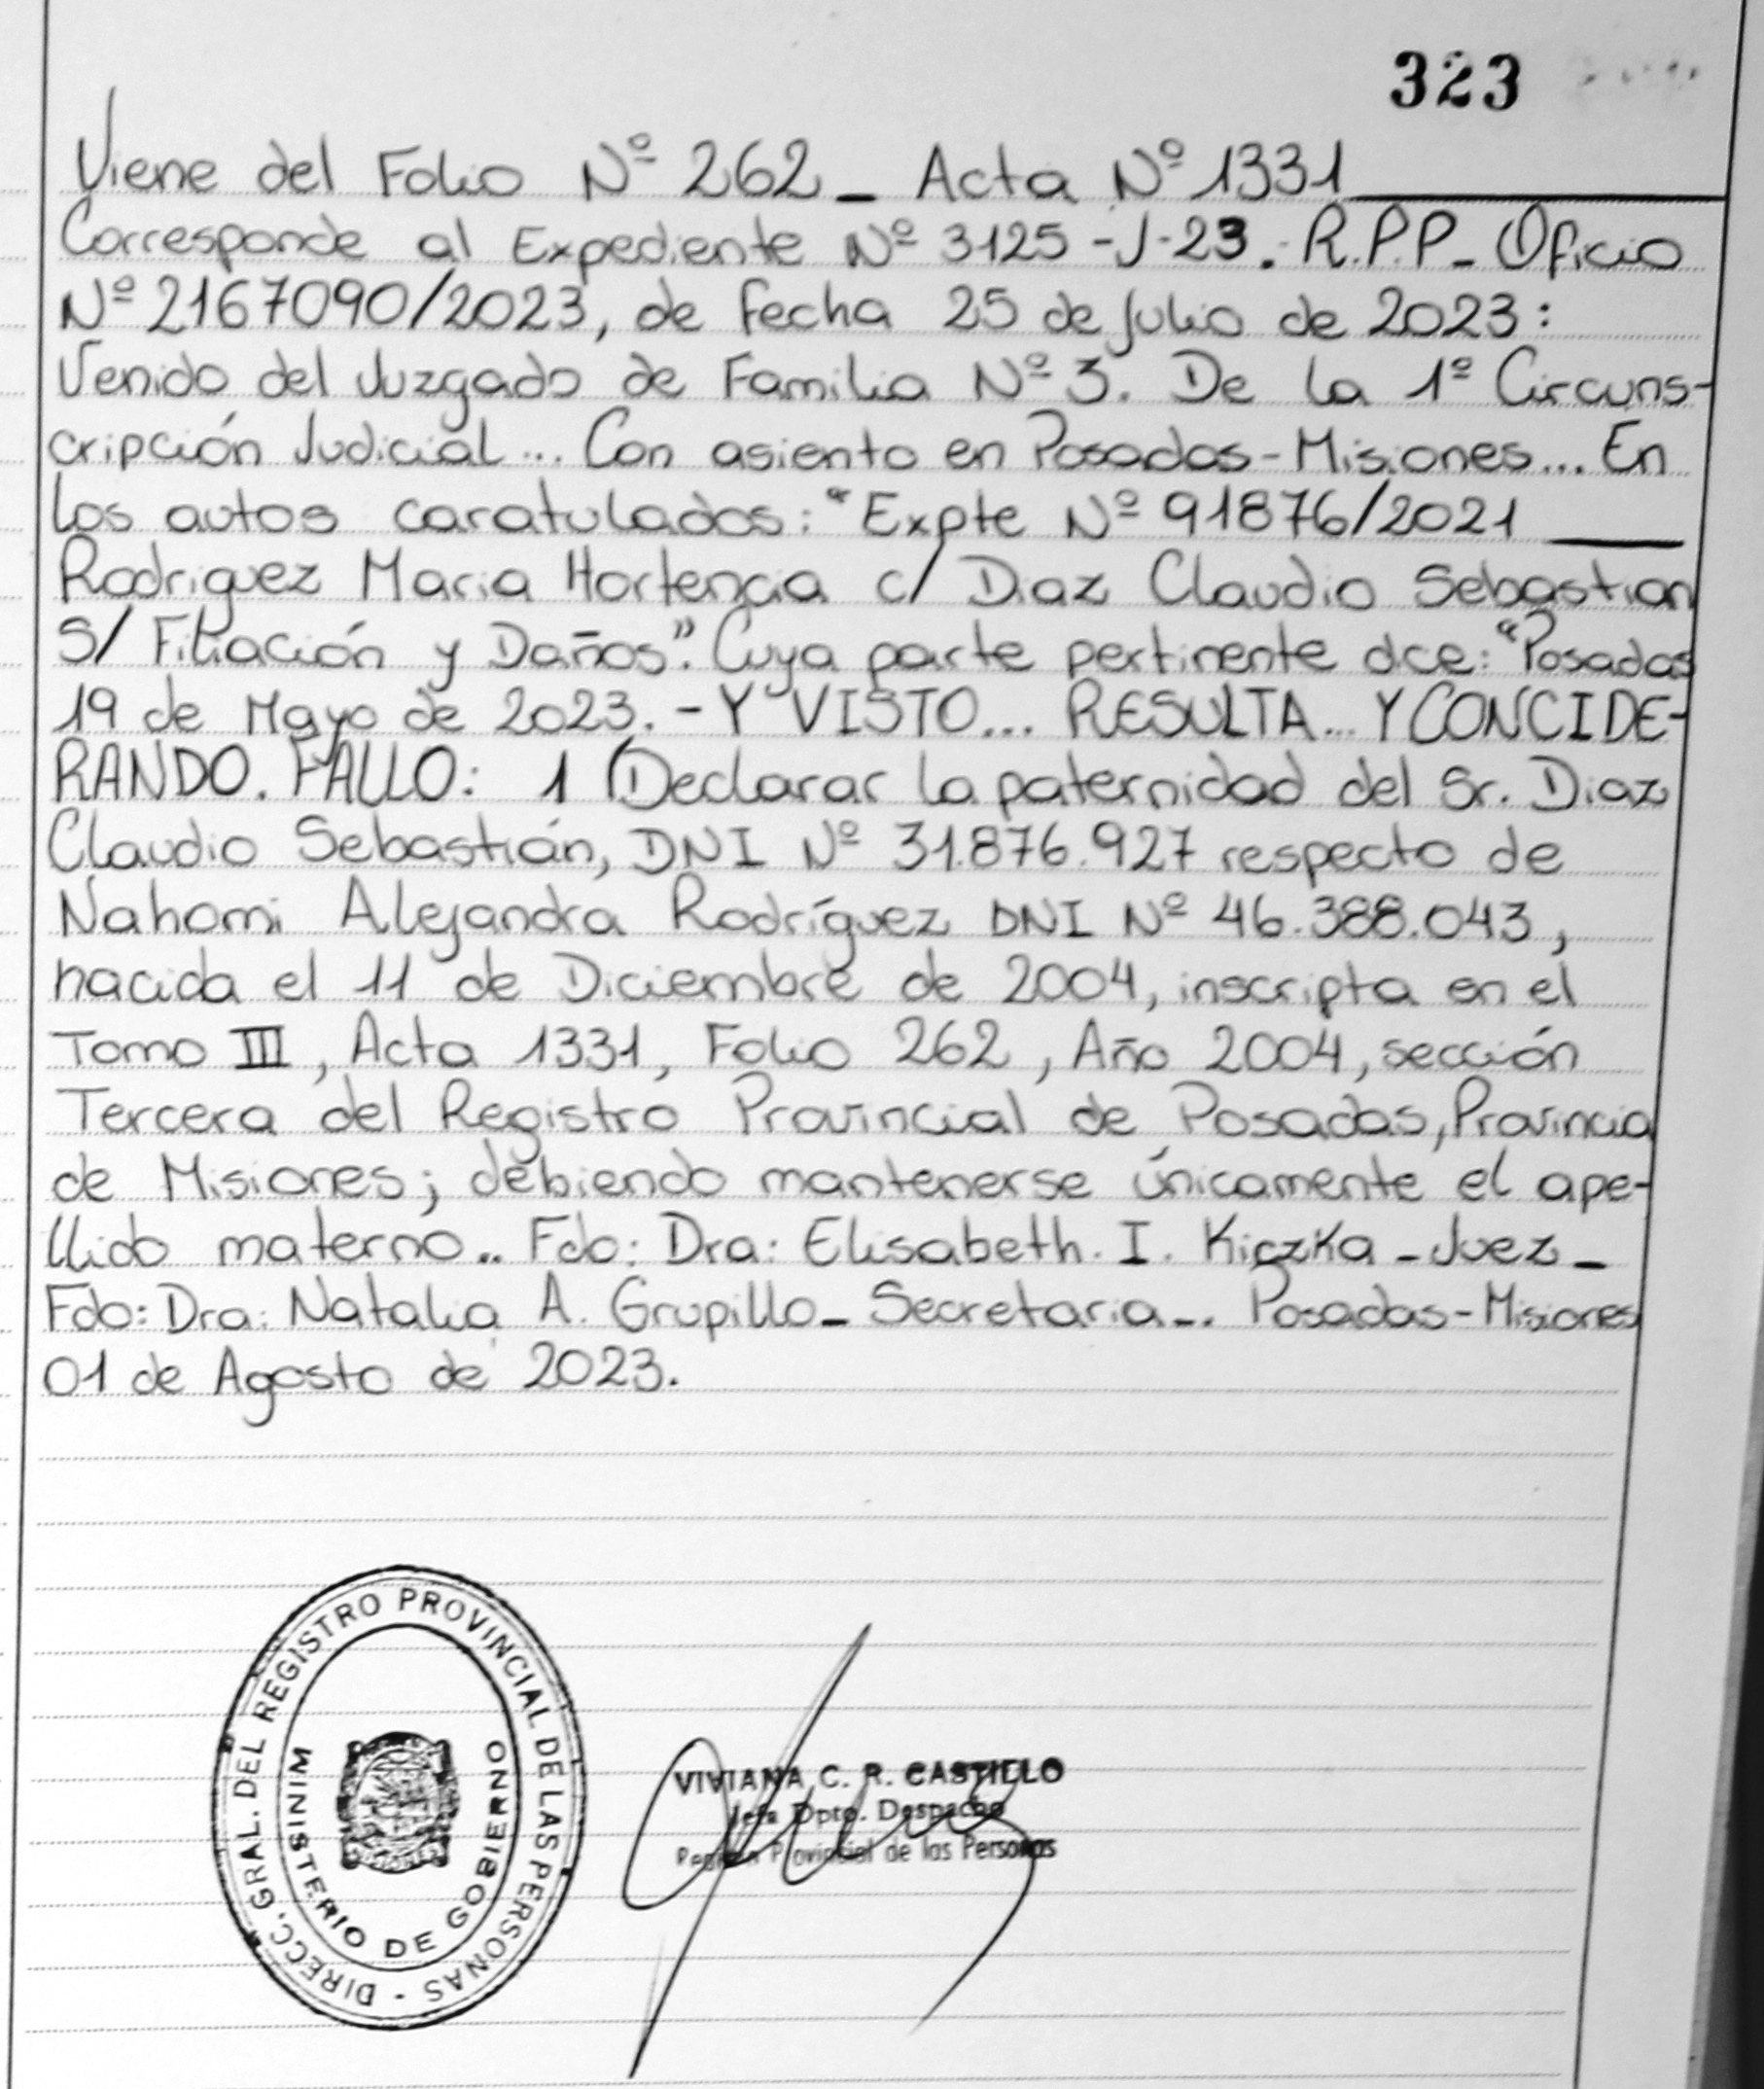 323
Viene del Folio Nº 262_ Acta Nº 1331
Corresponde al Expediente Nº 3125-J-23.- R.P.P_ Oficio
Nº 2167090/2023, de fecha 25 de julio de 2023:
Venido del Juzgado de Familia Nº 3. De la 1º Circuns-
cripción Judicial... Con asiento en Posadas-Misiones... En
los autos caratulados: "Expte Nº 91876/2021
Rodriguez Maria Hortencia c/ Diaz Claudio Sebastian
S/ Filiación y Daños". Cuya parte pertinente dce: "Posadas
19 de Mayo de 2023.-Y VISTO... RESULTA... Y CONCIDE-
RANDO. FALLO: 1 Declarar la paternidad del Sr. Diaz
Claudio Sebastián, DNI Nº 31.876.927 respecto de
Nahomi Alejandra Rodríguez DNI Nº 46.388.043,
nacida el 11 de Diciembre de 2004, inscripta en el
Tomo III, Acta 1331, Folio 262, Año 2004, sección
Tercera del Registro Provincial de Posadas, Provincia
de Misiones; debiendo mantenerse únicamente el ape-
llido materno.. Fdo: Dra: Elisabeth. I. Kiczka _Juez_
Fdo: Dra: Natalia A. Grupillo_ Secretaria_. Posadas-Misiones
01 de Agosto de 2023.
DIRECC. GRAL. DEL REGISTRO PROVINCIAL DE LAS PERSONAS -
MINISTERIO DE GOBIERNO
VIVIANA C. R. CASTILLO
Jefa Dpto. Despacho
Registro Provincial de las Personas